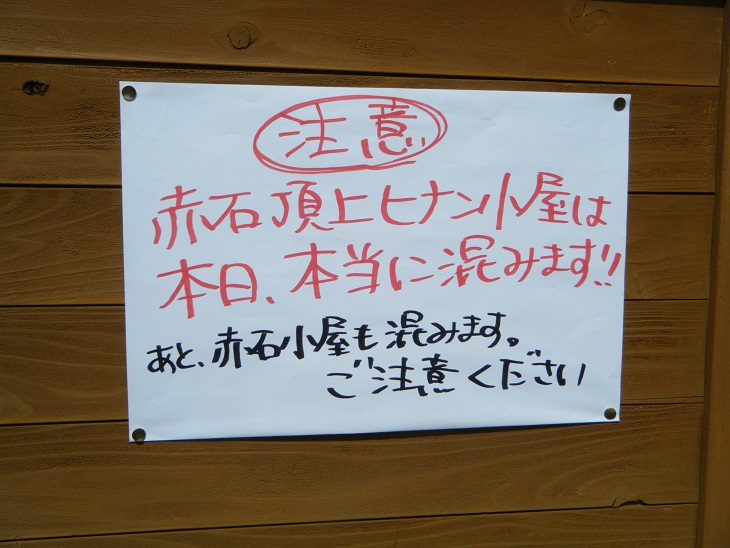 注意
赤石頂上ヒナン小屋は
本日、本当に混みます!!
あと、赤石小屋も混みます。
ご注意ください